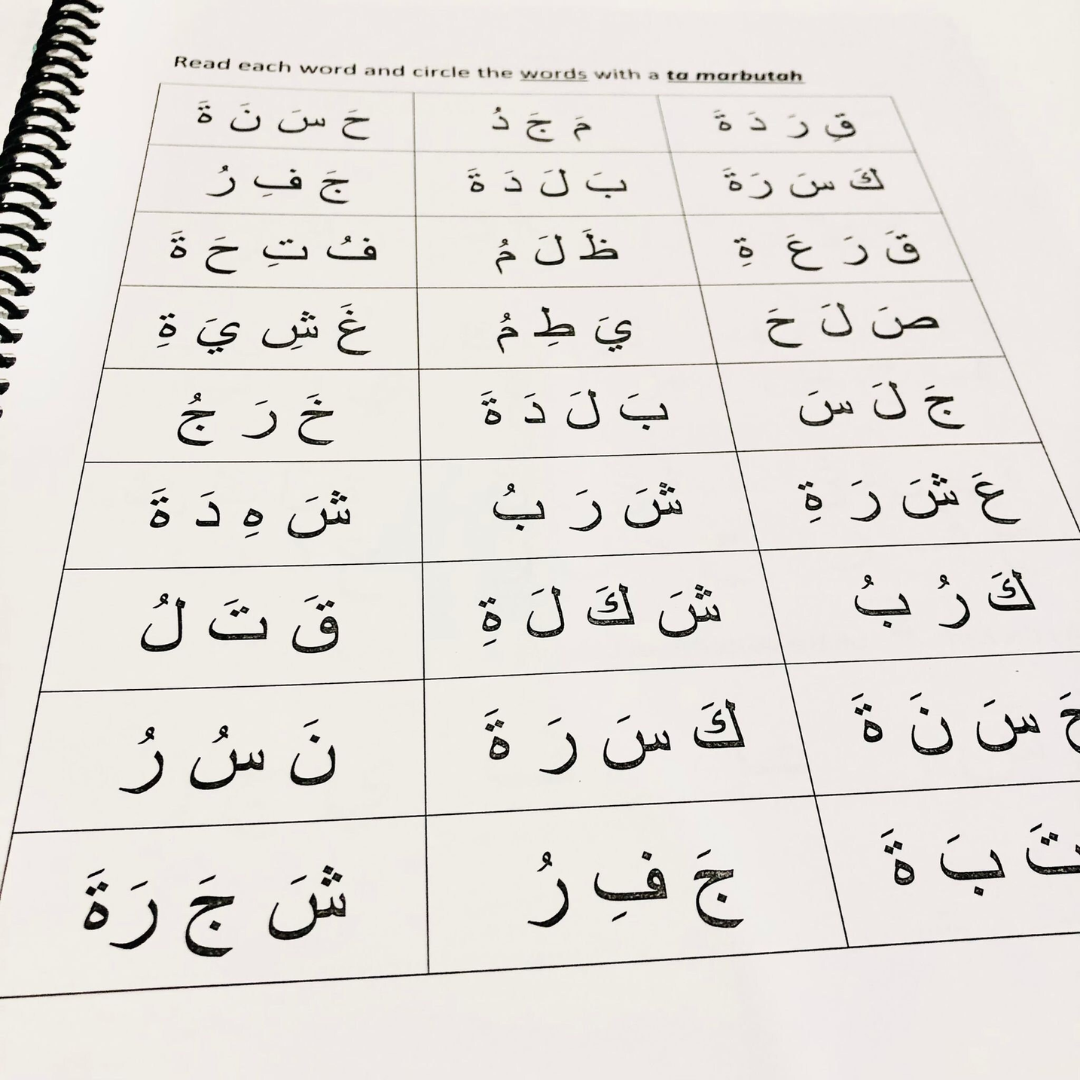 Read each word and circle the words with a ta marbutah
قِ رَ دَ ةَ
مَ جَ دُ
حَ سَ نَ ةَ
كَ سَ رَ ةَ
بَ لَ دَ ةَ
جَ فِ رُ
قَ رَ عَ ةِ
ظَ لَ مُ
فُ تِ حَ ةَ
صَ لَ حَ
يَ طِ مُ
غَ شِ يَ ةِ
جَ لَ سَ
بَ لَ دَ ةَ
خَ رَ جُ
عَ شَ رَ ةِ
شَ رَ بُ
شَ هِ دَ ةَ
كَ رُ بُ
شَ كَ لَ ةِ
قَ تَ لُ
سَ نَ ةَ
كَ سَ رَ ةَ
نَ سُ رُ
بَ ةَ
جَ فِ رُ
شَ جَ رَ ةَ